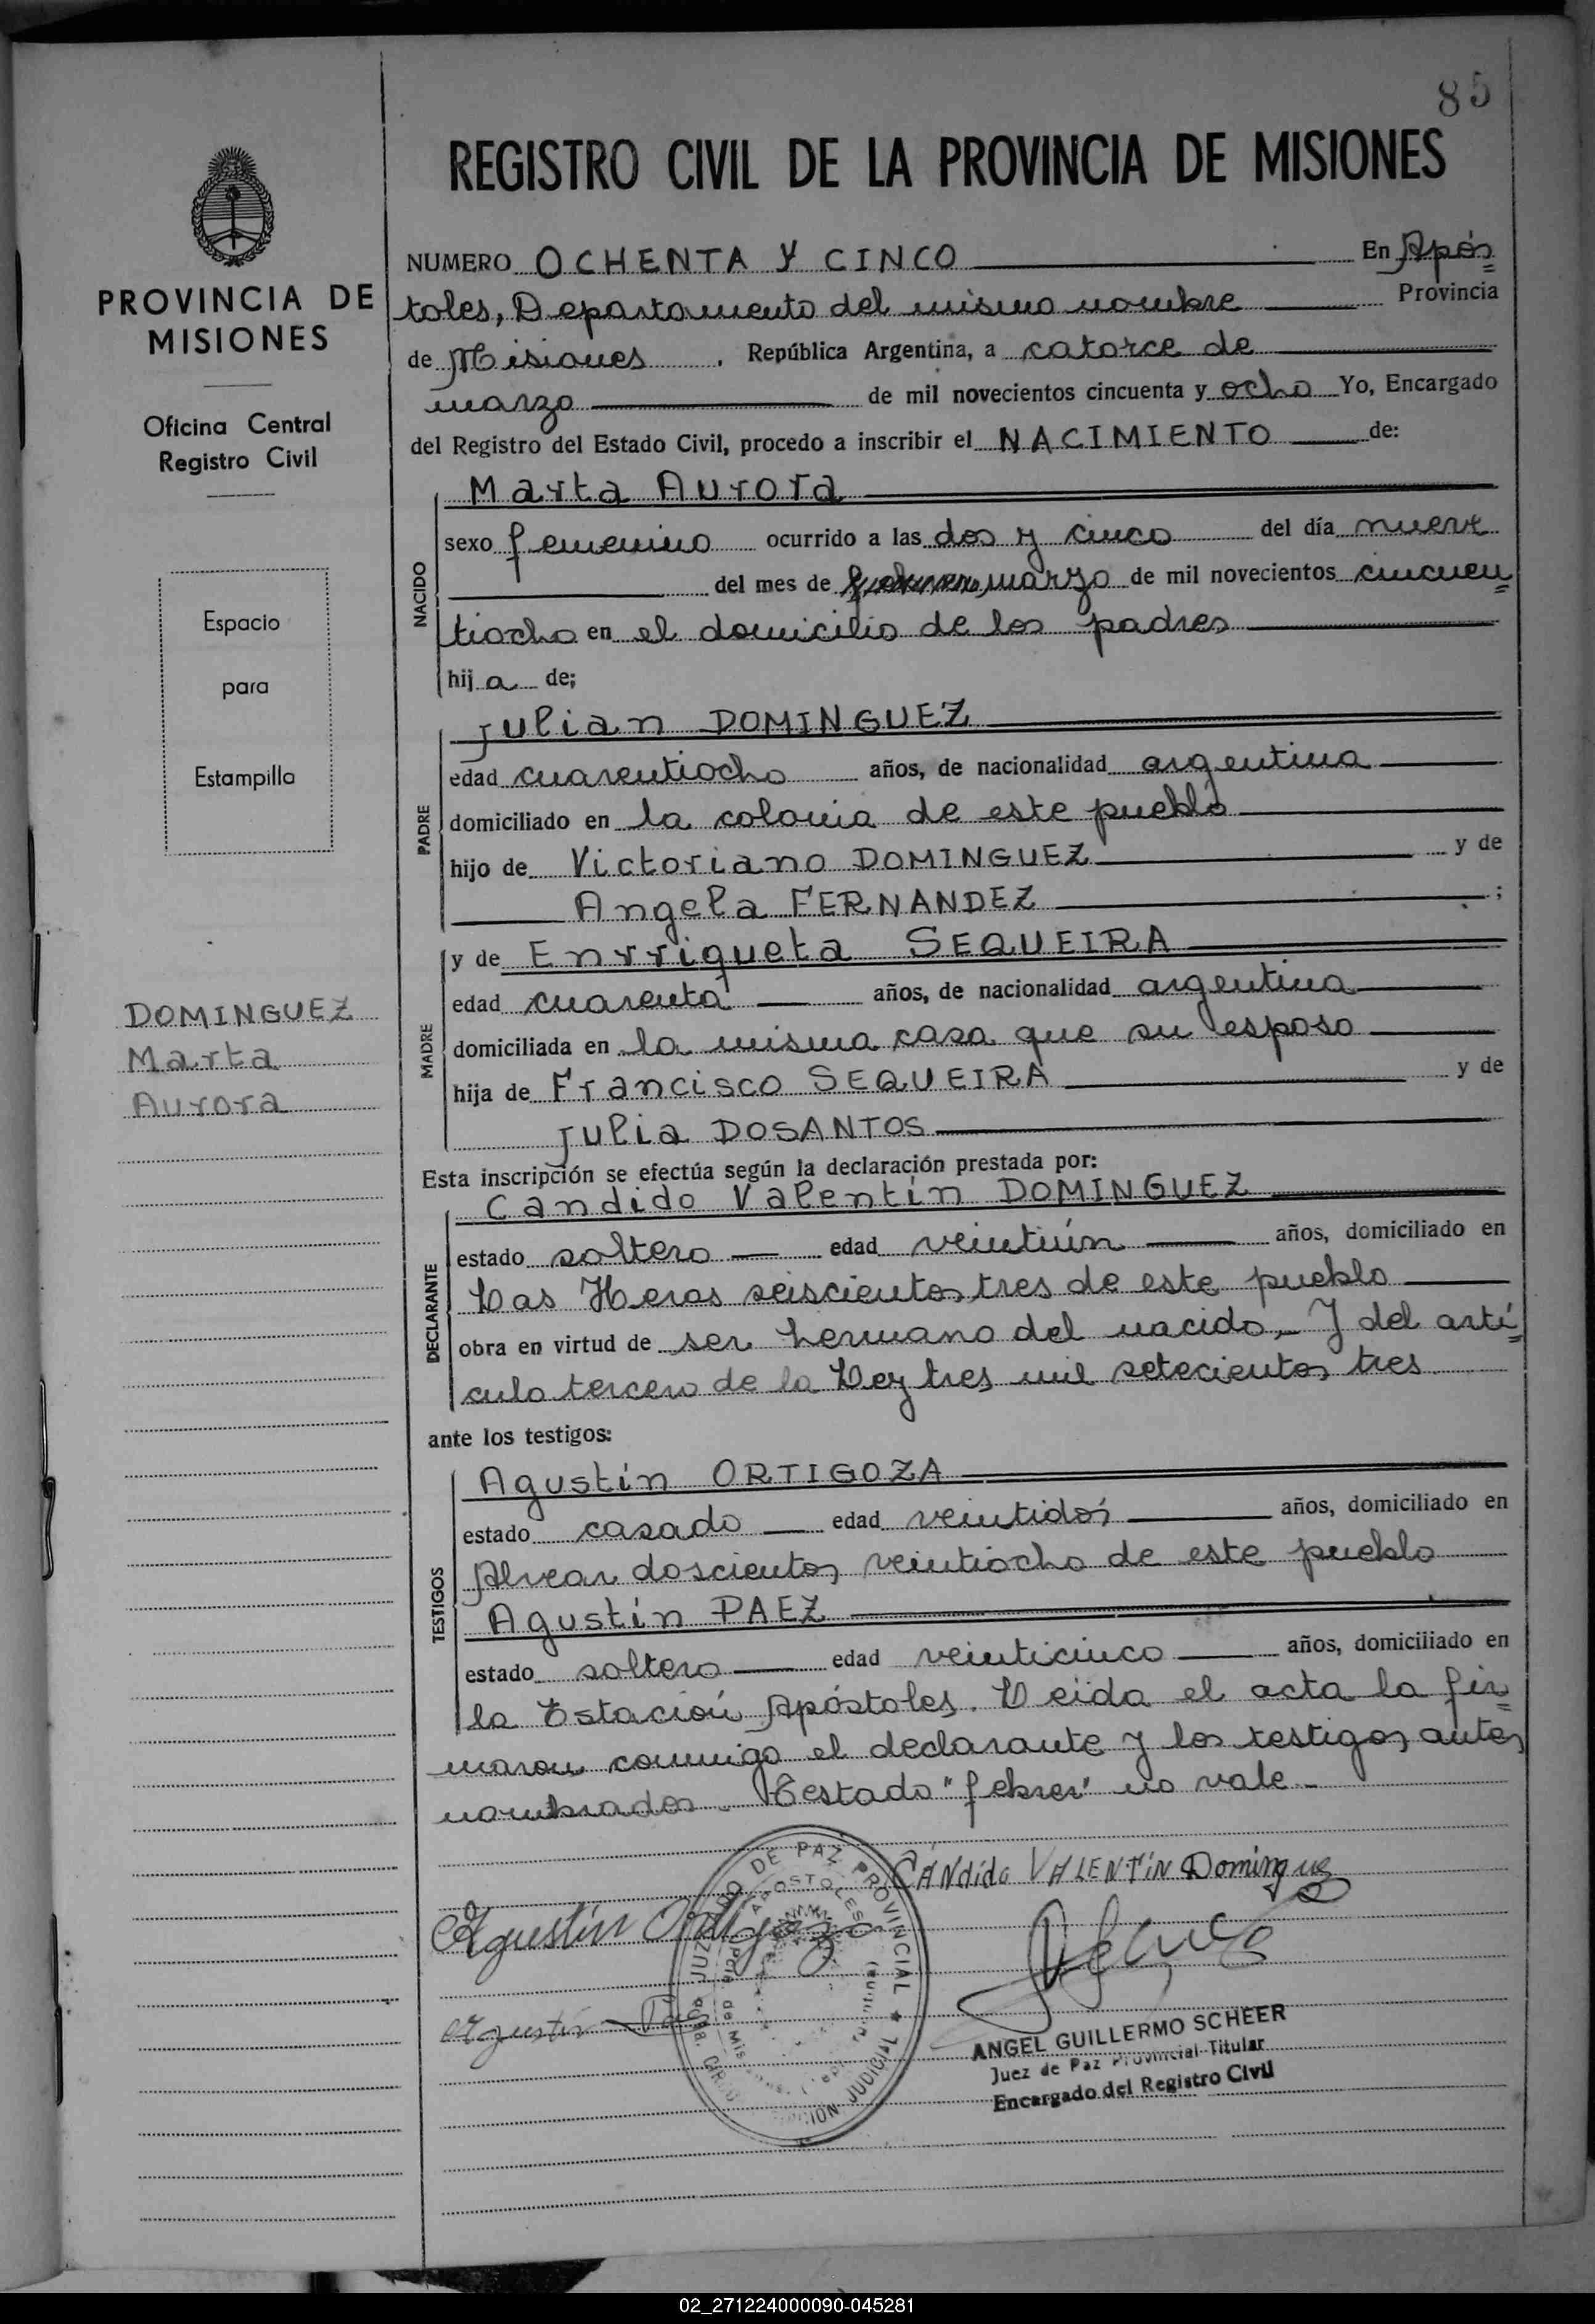 85
REGISTRO CIVIL DE LA PROVINCIA DE MISIONES
PROVINCIA DE
MISIONES
Oficina Central
Registro Civil
Espacio
para
Estampilla
DOMINGUEZ
Marta
Aurora
NUMERO OCHENTA Y CINCO En Após=
toles, Departamento del mismo nombre Provincia
de Misiones , República Argentina, a catorce de
marzo de mil novecientos cincuenta y ocho Yo, Encargado
del Registro del Estado Civil, procedo a inscribir el NACIMIENTO de:
NACIDO
Marta Aurora
sexo femenino ocurrido a las dos y cinco del día nueve
del mes de marzo de mil novecientos cincuen=
tiocho en el domicilio de los padres
hija de;
PADRE
Julian DOMINGUEZ
edad cuarentiocho años, de nacionalidad argentina
domiciliado en la colonia de este pueblo
hijo de Victoriano DOMINGUEZ y de
Angela FERNANDEZ ;
MADRE
y de Enrriqueta SEQUEIRA
edad cuarenta años, de nacionalidad argentina
domiciliada en la misma casa que su esposo
hija de Francisco SEQUEIRA y de
Julia DOSANTOS
Esta inscripción se efectúa según la declaración prestada por:
DECLARANTE
Candido Valentín DOMINGUEZ
estado soltero edad veintiún años, domiciliado en
Las Heras seiscientos tres de este pueblo
obra en virtud de ser hermano del nacido.- Y del artí=
culo tercero de la Ley tres mil setecientos tres
ante los testigos:
TESTIGOS
Agustín ORTIGOZA
estado casado edad veintidós años, domiciliado en
Alvear doscientos veintiocho de este pueblo
Agustín PAEZ
estado soltero edad veinticinco años, domiciliado en
la Estación Apóstoles. Leida el acta la fir=
maron conmigo el declarante y los testigos antes
nombrados. Testado "febrer" no vale.-
CÁNdido VALENTíN Dominguez
Agustín Ortigoza
Agustín Paez
JUZGADO DE PAZ PROVINCIAL
APOSTOLES
CIRCUNSCRIPCION JUDICIAL
ANGEL GUILLERMO SCHEER
Juez de Paz Provincial Titular
Encargado del Registro Civil
02_271224000090-045281